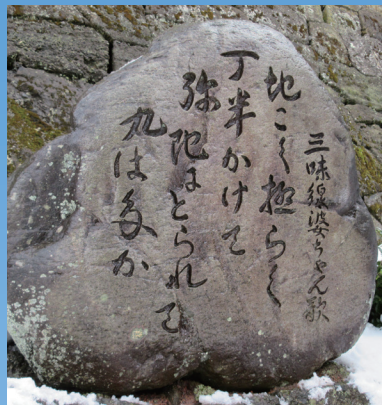 三味線婆ちゃん歌
地こく極らく
丁半かけて
弥陀にとられて
丸は多か